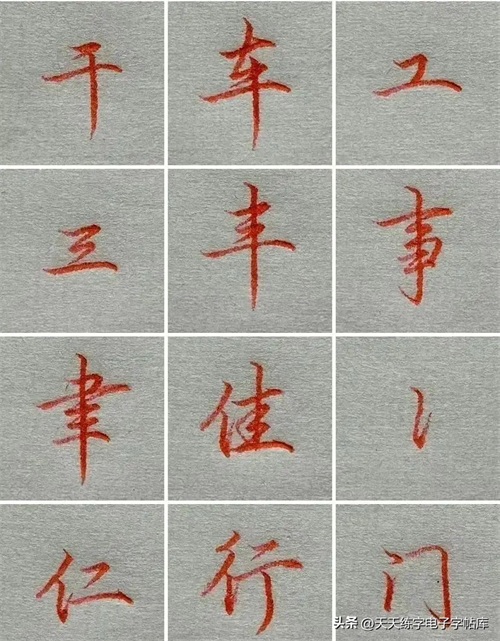 干 车 工
三 丰 事
聿 佳
仁 行 门
头条 @天天练字电子字帖库